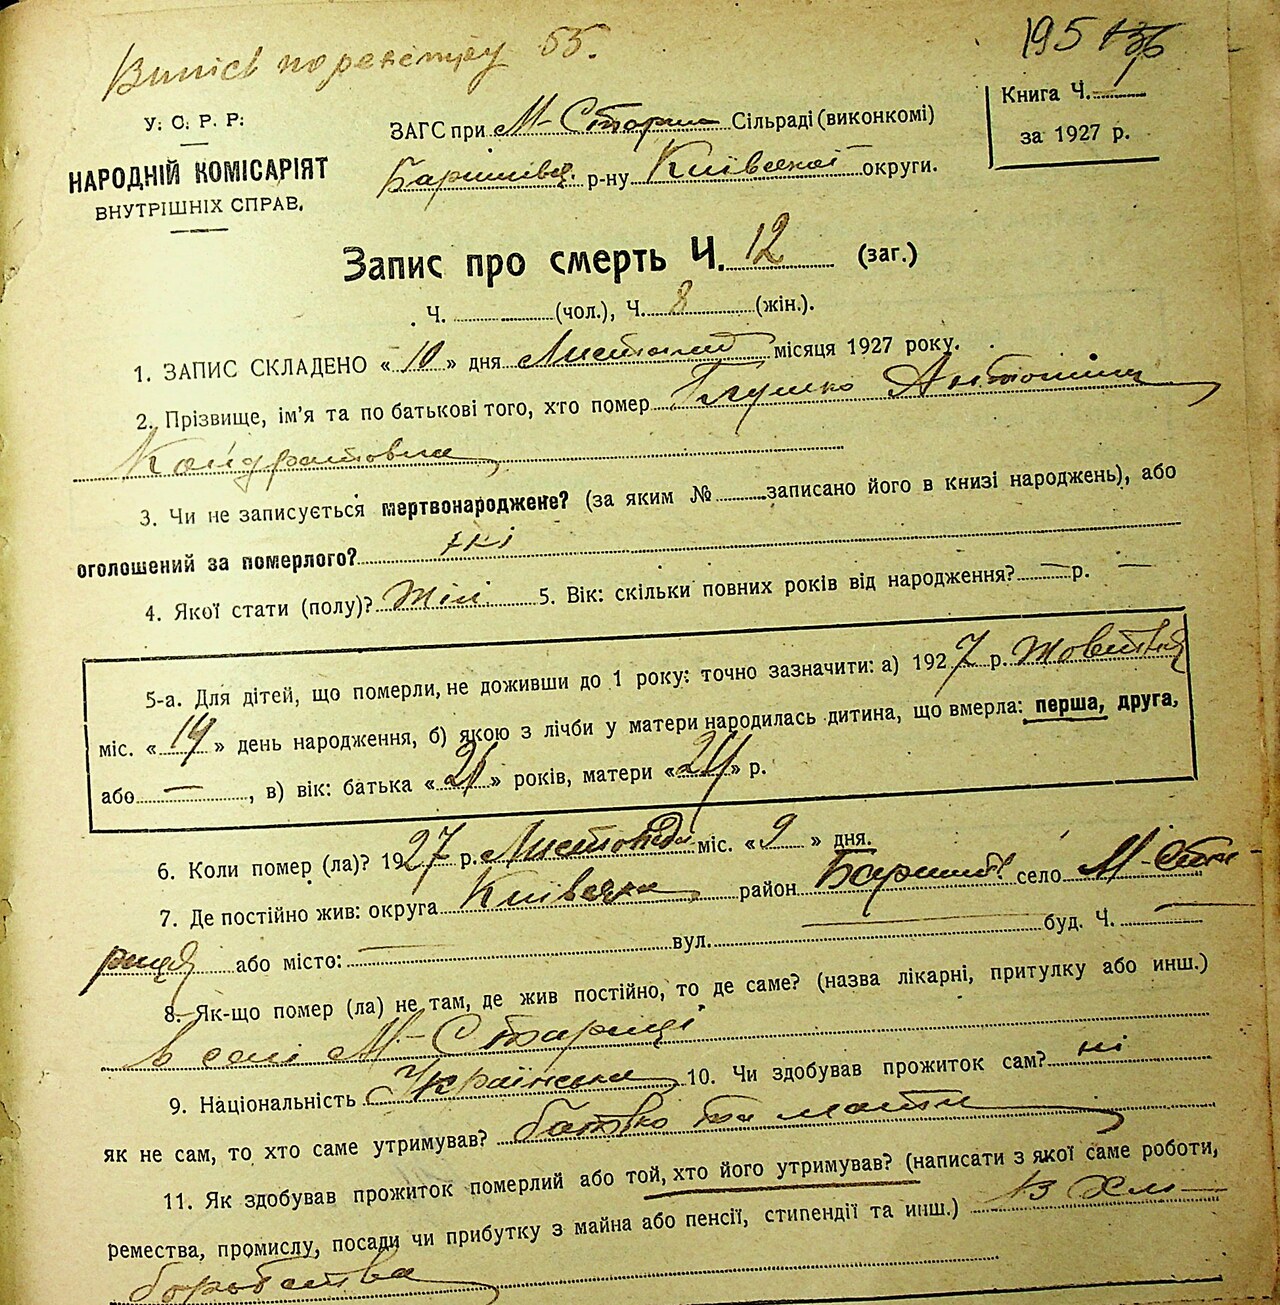 Виписв по реєстру 55.
195
У. С. Р. Р.
НАРОДНІЙ КОМІСАРІЯТ
ВНУТРІШНІХ СПРАВ.
ЗАГС при М-Стариц Сільраді (виконкомі)
Баришівсь. р-ну Київської округи.
Книга Ч.
за 1927 р.
Запис про смерть Ч. 12 (заг.)
Ч. (чол.), Ч. 8 (жін.).
1. ЗАПИС СКЛАДЕНО « 10 » дня Листопад місяця 1927 року.
2. Прізвище, ім'я та по батькові того, хто помер Глушко Антонина
Кондратовна
3. Чи не записується мертвонароджене? (за яким № записано його в книзі народжень), або
оголошений за померлого?
4. Якої стати (полу)? Жін. 5. Вік: скільки повних років від народження? — р. —
5-а. Для дітей, що померли, не доживши до 1 року: точно зазначити: а) 1927 р. Жовтня
міс. « 19 » день народження, б) якою з лічби у матери народилась дитина, що вмерла: перша, друга,
або — , в) вік: батька « 21 » років, матери « 24 » р.
6. Коли помер (ла)? 1927 р. Листопада міс. « 9 » дня.
7. Де постійно жив: округа Київська район Баришів село М-Ста-
риця або місто: — вул. — буд. Ч. —
8. Як-що помер (ла) не там, де жив постійно, то де саме? (назва лікарні, притулку або инш.)
в селі М-Стариці
9. Національність Українська 10. Чи здобував прожиток сам? ні
як не сам, то хто саме утримував? батько та мати
11. Як здобував прожиток померлий або той, хто його утримував? (написати з якої саме роботи,
ремества, промислу, посади чи прибутку з майна або пенсії, стипендії та инш.) Із Хлі-
боробства